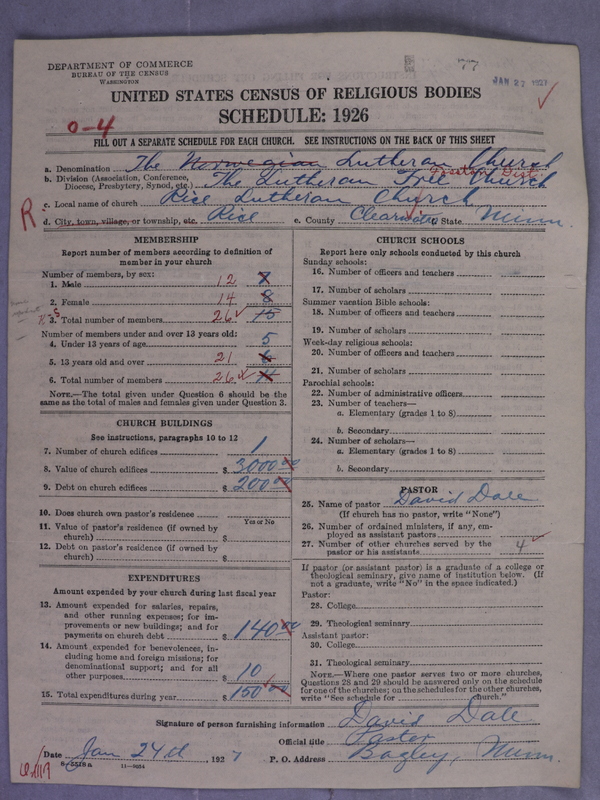 DEPARTMENT OF COMMERCE
BUREAU OF THE CENSUS
WASHINGTON
77
JAN 27 1927
UNITED STATES CENSUS OF RELIGIOUS BODIES
SCHEDULE: 1926
0-4
FILL OUT A SEPARATE SCHEDULE FOR EACH CHURCH. SEE INSTRUCTIONS ON THE BACK OF THIS SHEET
a. Denomination The Norwegian Lutheran Church
b. Division (Association, Conference, Diocese, Presbytery, Synod, etc.) The Lutheran Free Church
c. Local name of church Rice Lutheran Church
R
d. City, town, village, or township, etc. Rice e. County Clearwater f. State Minn.
MEMBERSHIP
Report number of members according to definition of
member in your church
Number of members, by sex:
1. Male 12 7
2. Female 14 8
3. Total number of members 26 15
Number of members under and over 13 years old:
4. Under 13 years of age 5
5. 13 years old and over 21
6. Total number of members 26
NOTE.—The total given under Question 6 should be the
same as the total of males and females given under Question 3.
CHURCH BUILDINGS
See instructions, paragraphs 10 to 12
7. Number of church edifices 1
8. Value of church edifices $ 3000 00
9. Debt on church edifices $ 200 00
10. Does church own pastor's residence
Yes or No
11. Value of pastor's residence (if owned by
church) $
12. Debt on pastor's residence (if owned by
church) $
EXPENDITURES
Amount expended by your church during last fiscal year
13. Amount expended for salaries, repairs,
and other running expenses; for im-
provements or new buildings; and for
payments on church debt $ 140 00
14. Amount expended for benevolences, in-
cluding home and foreign missions; for
denominational support; and for all
other purposes $ 10
15. Total expenditures during year $ 150 00
CHURCH SCHOOLS
Report here only schools conducted by this church
Sunday schools:
16. Number of officers and teachers
17. Number of scholars
Summer vacation Bible schools:
18. Number of officers and teachers
19. Number of scholars
Week-day religious schools:
20. Number of officers and teachers
21. Number of scholars
Parochial schools:
22. Number of administrative officers
23. Number of teachers—
a. Elementary (grades 1 to 8)
b. Secondary
24. Number of scholars—
a. Elementary (grades 1 to 8)
b. Secondary
PASTOR
25. Name of pastor David Dale
(If church has no pastor, write "None")
26. Number of ordained ministers, if any, em-
ployed as assistant pastors
27. Number of other churches served by the
pastor or his assistants 4
If pastor (or assistant pastor) is a graduate of a college or
theological seminary, give name of institution below. (If
not a graduate, write "No" in the space indicated.)
Pastor:
28. College
29. Theological seminary
Assistant pastor:
30. College
31. Theological seminary
NOTE.—Where one pastor serves two or more churches,
Questions 28 and 29 should be answered only on the schedule
for one of the churches; on the schedules for the other churches,
write "See schedule for church."
Signature of person furnishing information David Dale
Official title Pastor
Date Jan 24th 1927 P. O. Address Bagley, Minn.
8-5518a 11-9024